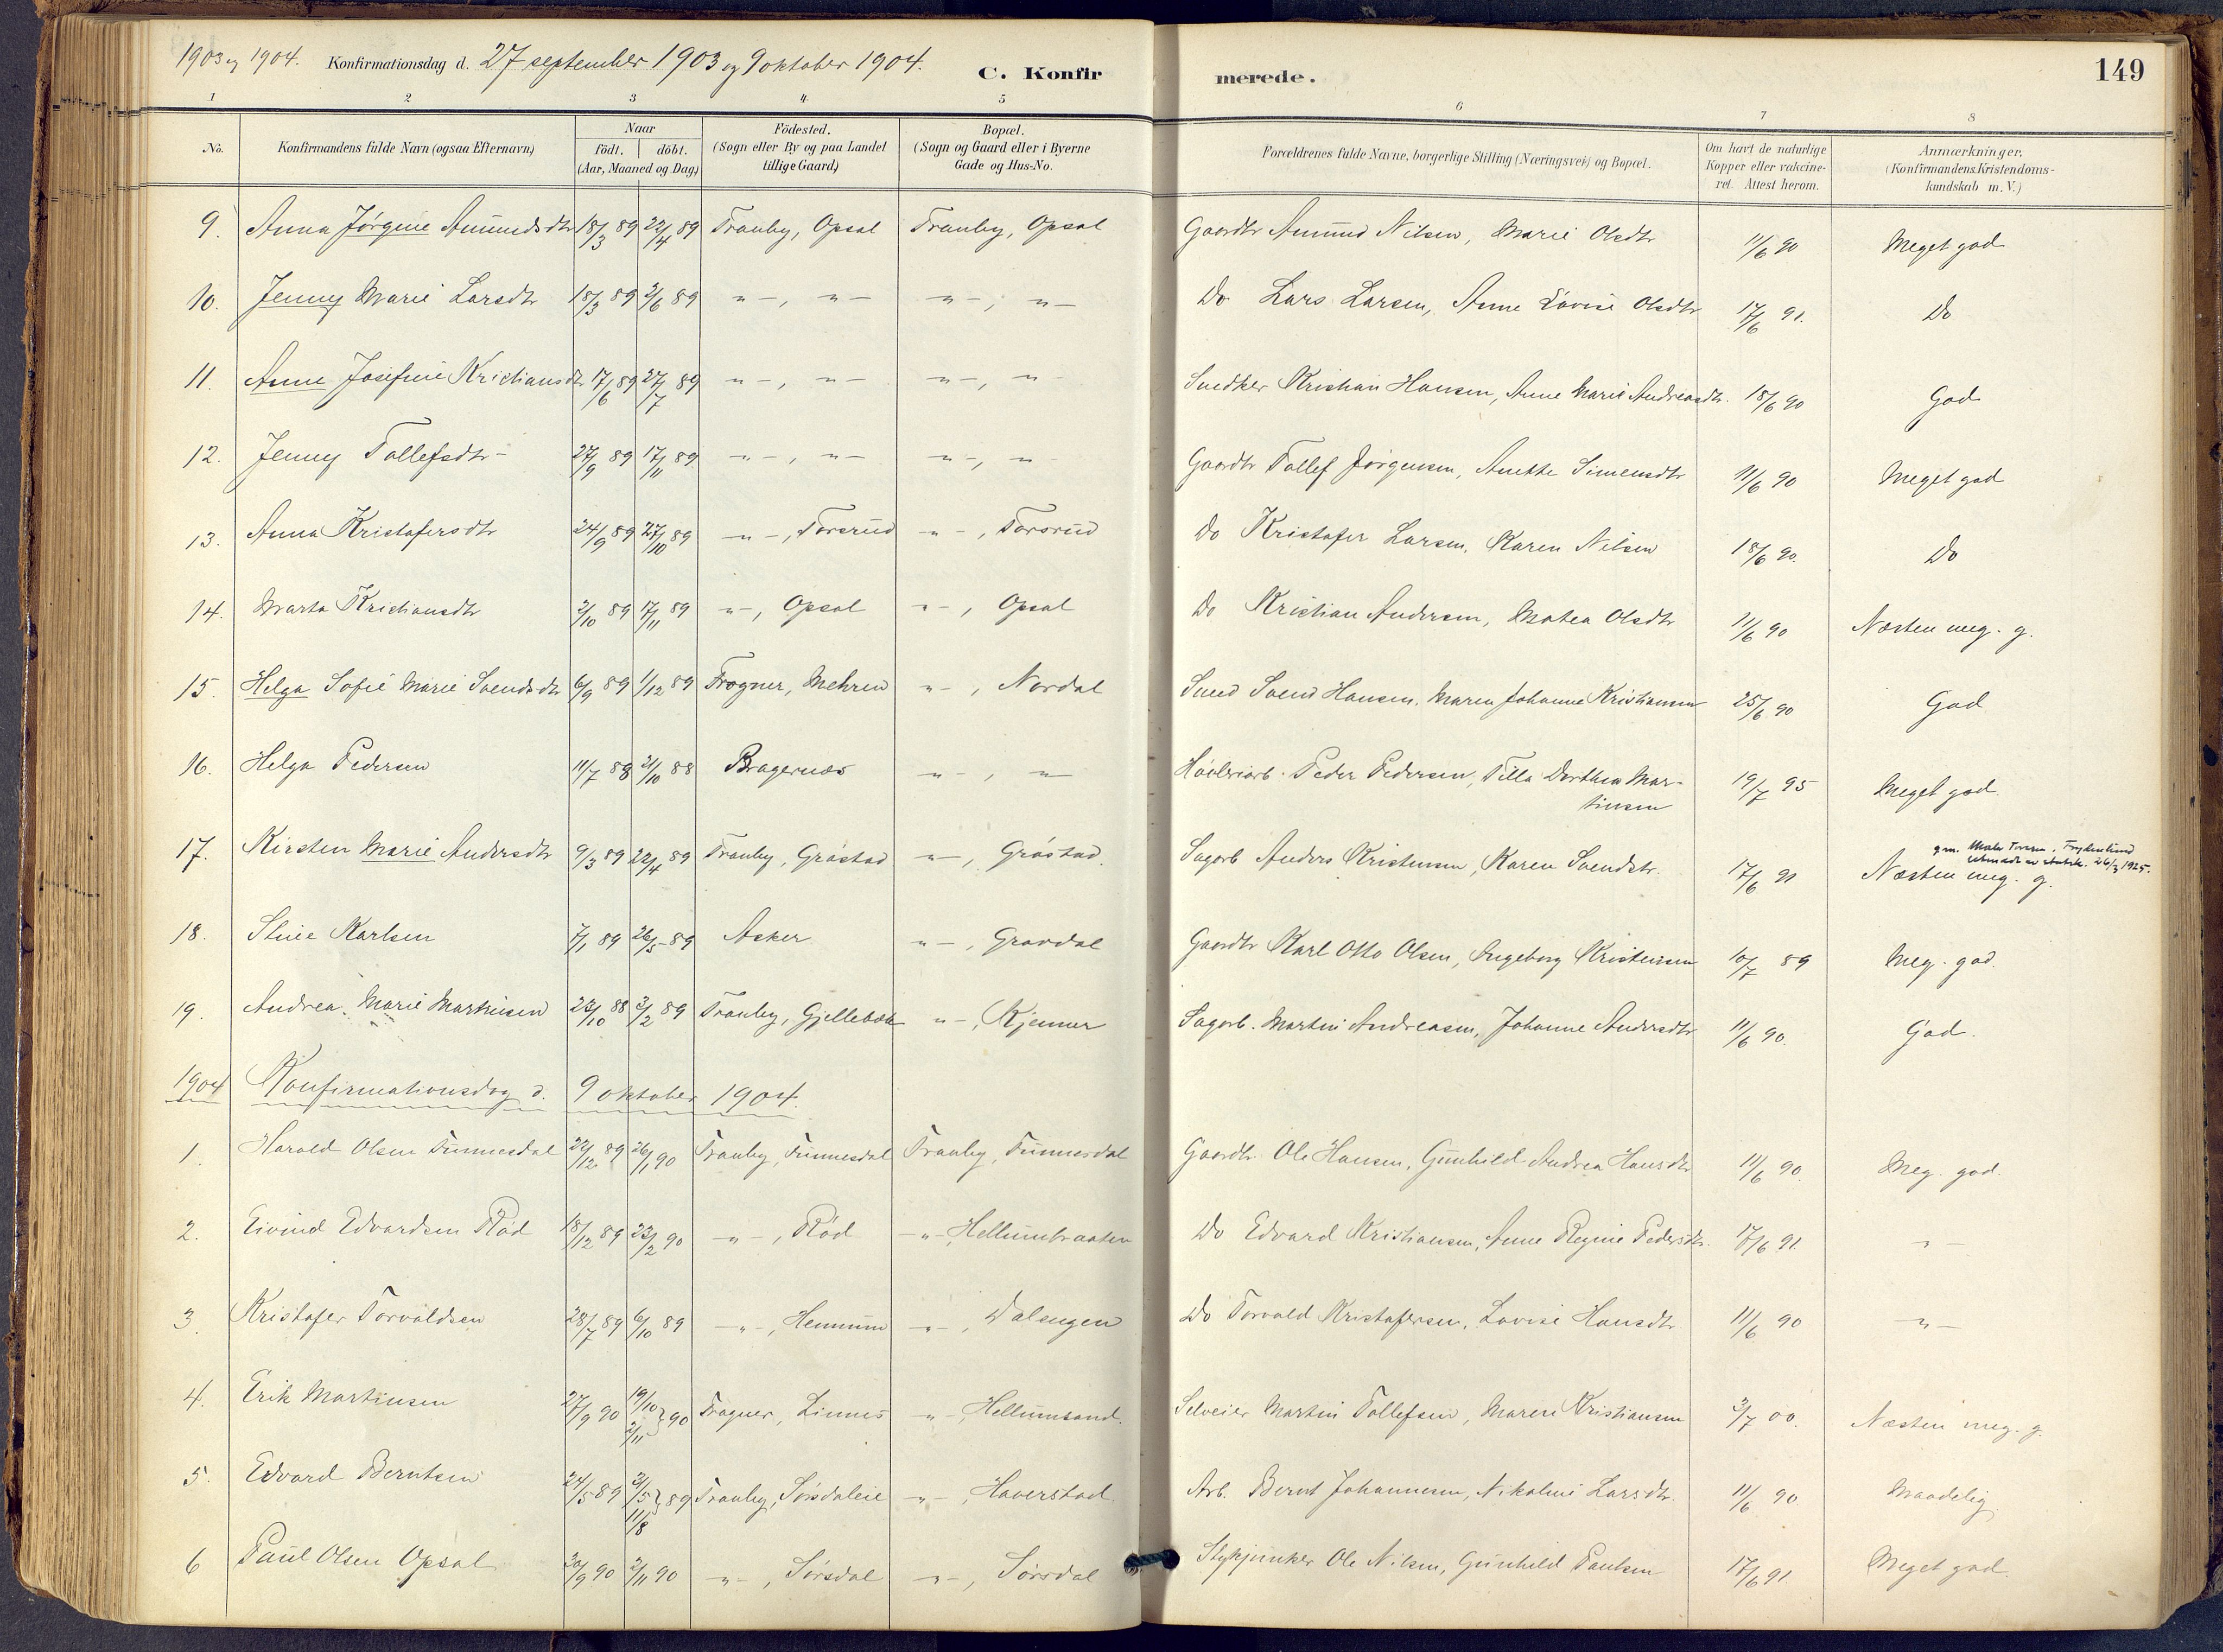 1903 og 1904. Konfirmationsdag d. 27 september 1903 og 9 oktober 1904. C. Konfirmerede. 149
1 2 3 4 5 6 7 8
No. Konfirmandens fulde Navn (ogsaa Efternavn) Naar födt. döbt. (Aar, Maaned og Dag) Födested. (Sogn eller By og paa Landet tillige Gaard) Bopæl. (Sogn og Gaard eller i Byerne Gade og Hus-No. Forældrenes fulde Navne, borgerlige Stilling (Næringsvei) og Bopæl. Om havt de naturlige Kopper eller vakcineret. Attest herom. Anmærkninger, (Konfirmandens Kristendomskundskab m. V.)
9. Anna Jørgine Amundsdtr 18/3 89 22/4 89 Tranby, Opsal Tranby, Opsal Gaardbr Amund Nilsen, Marie Olsdtr 11/6 90 Meget god
10. Jenny Marie Larsdtr 18/3 89 2/6 89 "-, "- "-, "- Do Lars Larsen, Anne Lovise Olsdtr 17/6 91. Do
11. Anne Josefine Kristiansdtr 17/6 89 27/7 89 "-, "- "-, "- Snedker Kristian Hansen, Anne Marie Andreasdtr. 18/6 90 God
12. Jenny Tollefsdtr- 27/9 89 17/11 89 "-, "- "-, "- Gaardbr Tollef Jørgensen, Anette Simensdtr 11/6 90 Meget god
13. Anna Kristofersdtr 24/9 89 27/10 89 "-, Torsrud "-, Torsrud Do Kristofer Larsen, Karen Nilsen 18/6 90. Do
14. Marta Kristiansdtr 2/10 89 17/11 89 "-, Opsal "-, Opsal Do Kristian Andersen, Matea Olsdtr 11/6 90 Næsten meg. g.
15. Helga Sofie Marie Svendsdtr 6/9 89 1/12 89 Frogner, Mehren "-, Nordal Smed Svend Hansen, Maren Johanne Kristiansen 25/6 90 God
16. Helga Pedersen 11/7 88 21/10 88 Bragernæs "-, "- Høvleriarb. Peder Pedersen, Tilla Dorthea Mar-
tinsen 19/7 95 Meget god.
17. Kirsten Marie Andersdtr 9/3 89 22/4 89 Tranby, Gråstad "-, Gråstad. Sagarb Anders Kristensen, Karen Svendsdtr. 17/6 91 Næsten meg. g.
26/3 1925.
18. Stine Karlsen 7/1 89 26/5 89 Asker "-, Gravdal Gaardbr Karl Otto Olsen, Ingeborg Kristensen 10/7 89 Meg. god.
19. Andrea Marie Martinsen 23/10 88 3/2 89 Tranby, Gjellebæk "-, Kjenner Sagarb. Martin Andreasen, Johanne Andersdtr 11/6 90. God.
1904 Konfirmationsdag d. 9 oktober 1904.
1. Harald Olsen Tunnesdal 22/12 89 26/1 90 Tranby, Tunnesdal Tranby, Tunnesdal Gaardbr. Ole Hansen, Gunhild Andrea Hansdtr 11/6 90. Meg. god.
2. Eivind Edvardsen Rød 18/12 89 23/2 90 -"-, Rød -"-, Hellumbraaten Do Edvard Kristiansen, Anne Regine Pedersdtr. 17/6 91. -"-
3. Kristofer Torvaldsen 28/7 89 6/10 89 -"-, Hennum "-, Dalengen Do Torvald Kristofersen, Lovise Hansdtr. 11/6 90 "-
4. Erik Martinsen 27/9 90 19/10 2/11 } 90 Frogner, Linnes "-, Hellumsand. Selveier Martin Tollefsen, Maren Kristiansen 3/7 00. Næsten meg. g.
5. Edvard Berntsen 24/5 89 31/5 11/8 } 89 Tranby, Sørsdaleie "-, Haverstad. Arb. Bernt Johannesen, Nikoline Larsdtr. 11/6 90. Maadelig
6 Paul Olsen Opsal 30/9 90 2/11 90 "-, Sørsdal "-, Sørsdal Ole Nilsen, Gunhild Paulsen 17/6 91 Meget god.